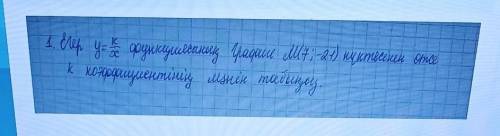 1. Егер y=к/x функциясының графигі M(7;-21) нүктесінен өтсе
к коэффициентінің мәнін табыңыз.